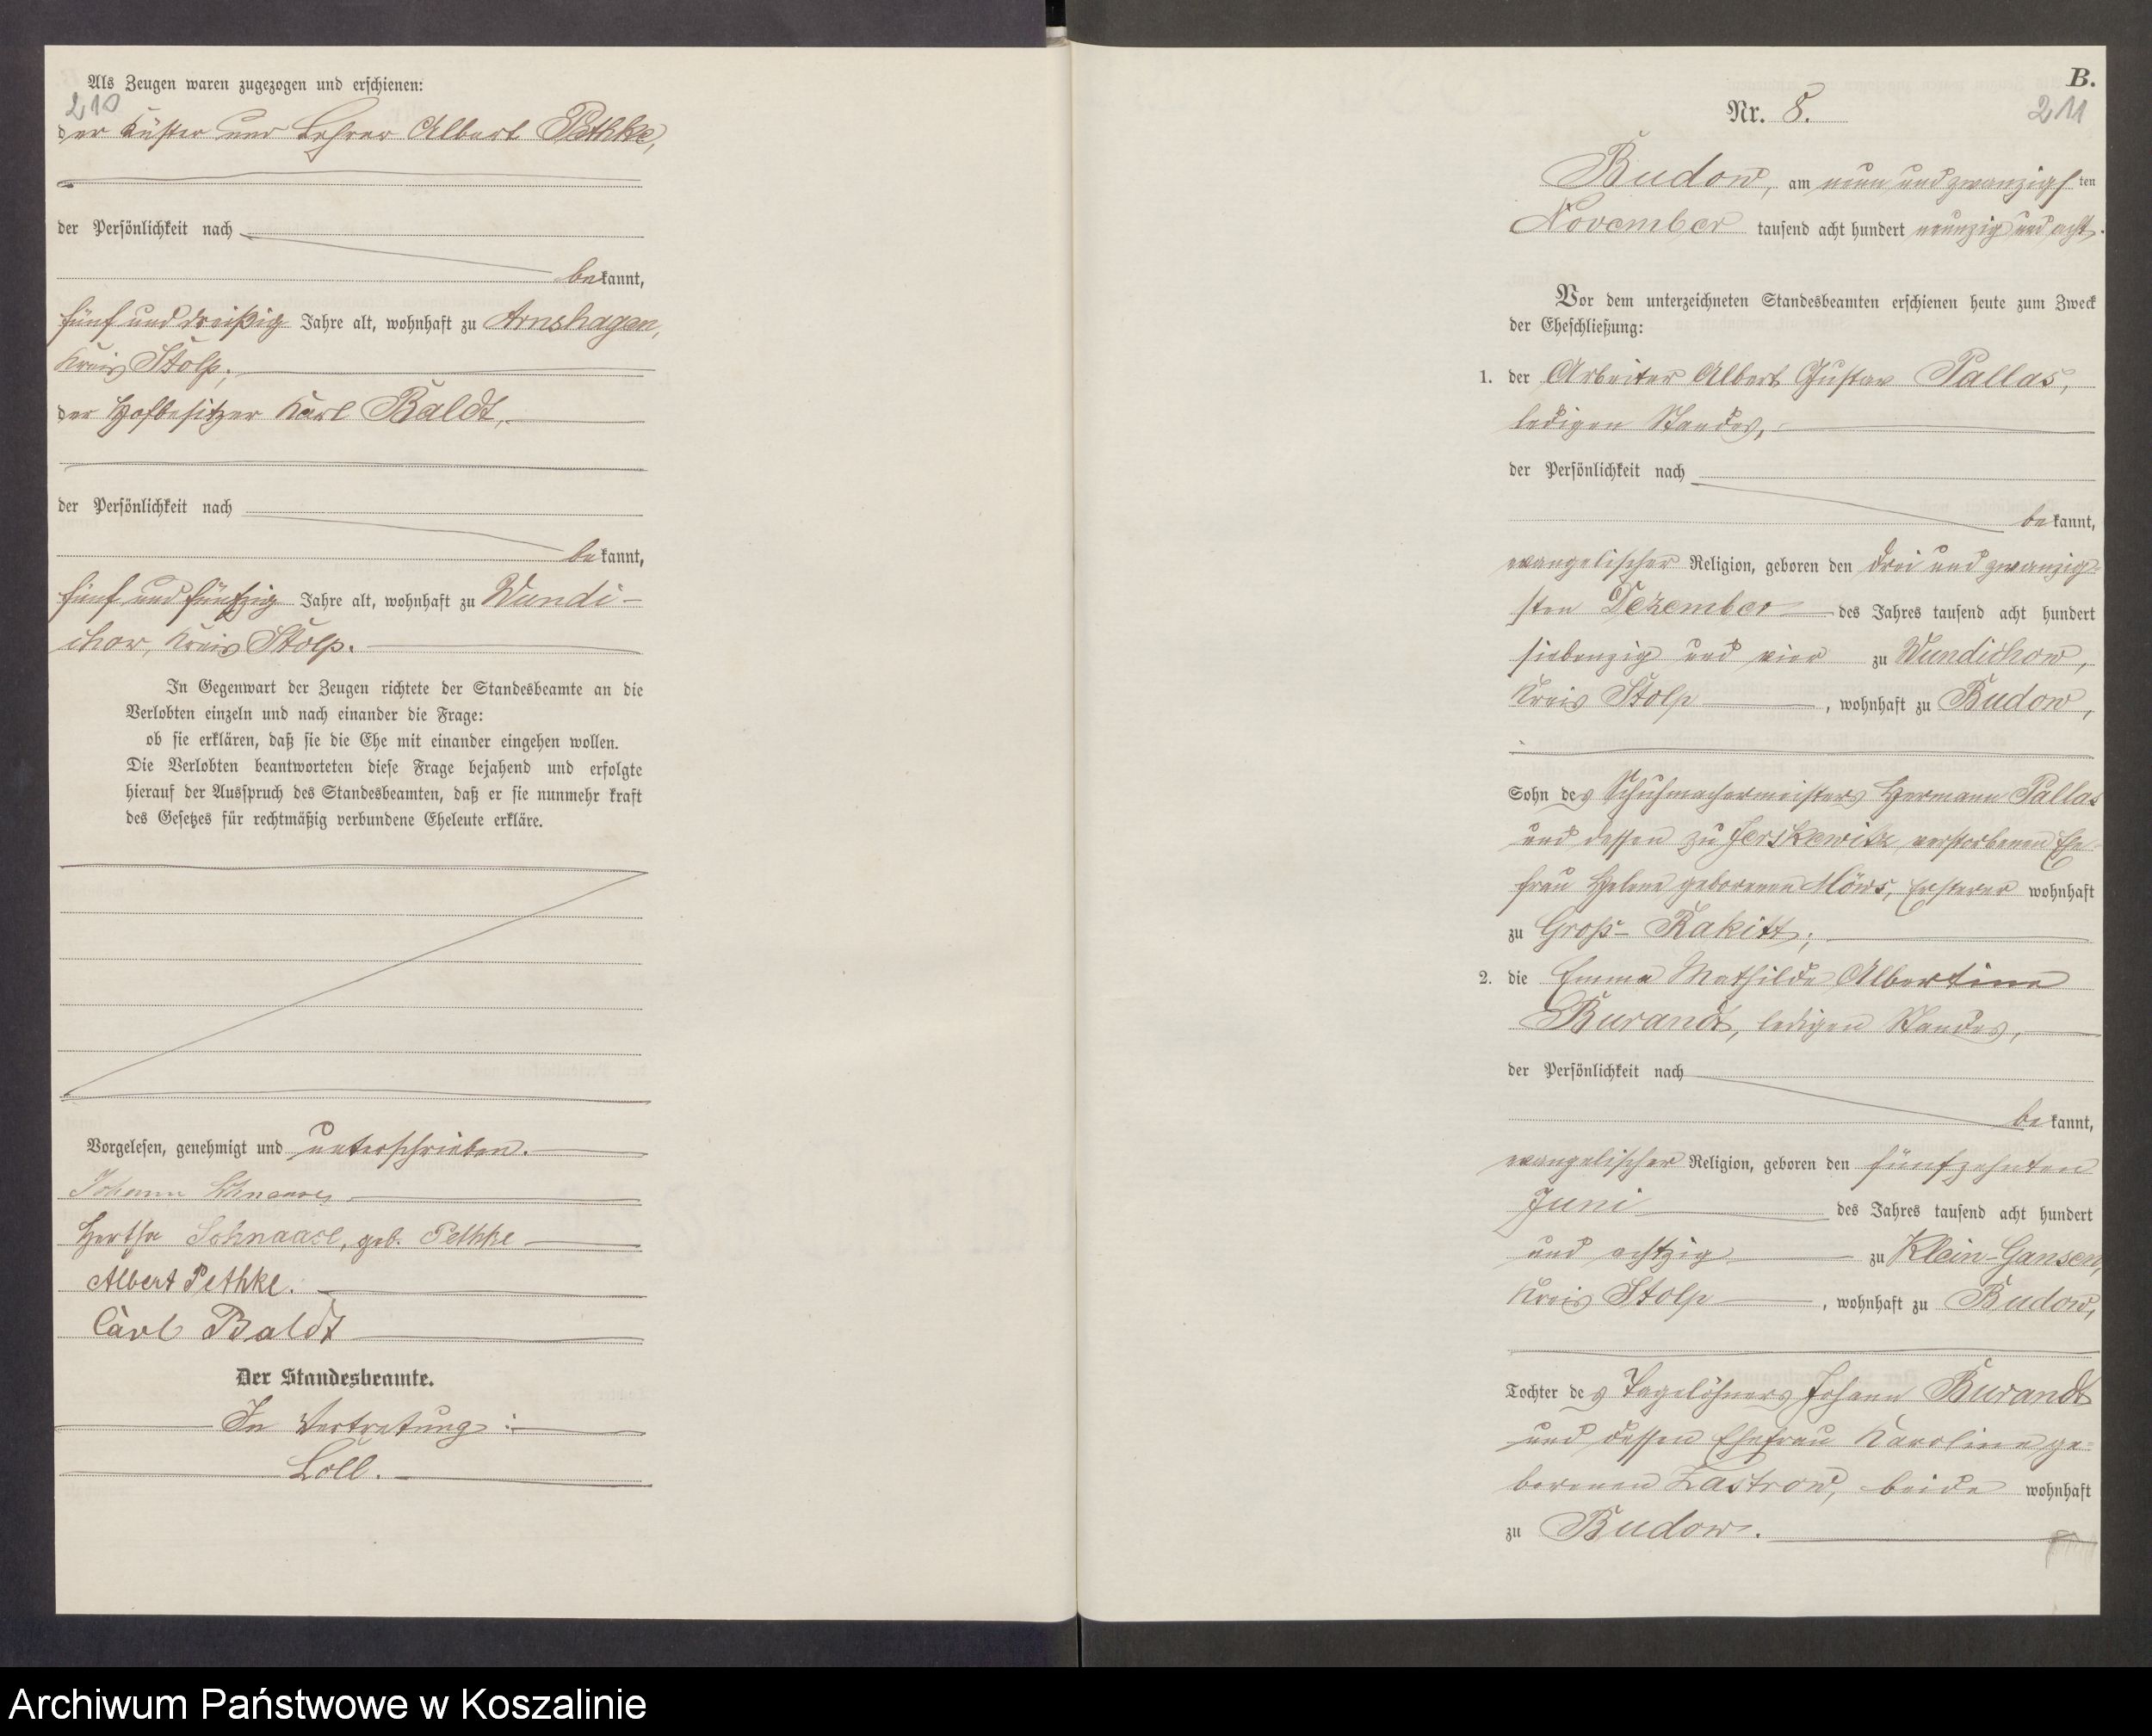 Als Zeugen waren zugezogen und erschienen:
210
der Küster und Lehrer Albert Pethke,
der Persönlichkeit nach
bekannt,
fünf und dreißig Jahre alt, wohnhaft zu Arnshagen,
Kreis Stolp;
der Hofbesitzer Karl Baldt,
der Persönlichkeit nach
bekannt,
fünf und fünfzig Jahre alt, wohnhaft zu Wundi-
chow, Kreis Stolp.
In Gegenwart der Zeugen richtete der Standesbeamte an die
Verlobten einzeln und nach einander die Frage:
ob sie erklären, daß sie die Ehe mit einander eingehen wollen.
Die Verlobten beantworteten diese Frage bejahend und erfolgte
hierauf der Ausspruch des Standesbeamten, daß er sie nunmehr kraft
des Gesetzes für rechtmäßig verbundene Eheleute erkläre.
Vorgelesen, genehmigt und unterschrieben.
Johann Schnaase
Hertha Schnaase, geb. Pethke
Albert Pethke.
Carl Baldt
Der Standesbeamte.
In Vertretung:
Löll.
B.
Nr. 8.
211
Budow, am neun und zwanzigsten
November tausend acht hundert neunzig und acht.
Vor dem unterzeichneten Standesbeamten erschienen heute zum Zweck
der Eheschließung:
1. der Arbeiter Albert Gustav Pallas,
ledigen Standes,
der Persönlichkeit nach
bekannt,
evangelischer Religion, geboren den drei und zwanzig-
sten Dezember des Jahres tausend acht hundert
siebenzig und vier zu Wundichow,
Kreis Stolp, wohnhaft zu Budow,
Sohn des Schuhmachermeisters Hermann Pallas
und dessen zu Jerskewitz verstorbenen Ehe-
frau Helene geborenen Möws, Ersterer wohnhaft
zu Groß-Rakitt;
2. die Emma Mathilde Albertine
Burandt, ledigen Standes,
der Persönlichkeit nach
bekannt,
evangelischer Religion, geboren den fünfzehnten
Juni des Jahres tausend acht hundert
und achtzig zu Klein-Gansen,
Kreis Stolp, wohnhaft zu Budow,
Tochter des Tagelöhners Johann Burandt
und dessen Ehefrau Karoline ge-
borenen Zastrow, beide wohnhaft
zu Budow.
Archiwum Państwowe w Koszalinie